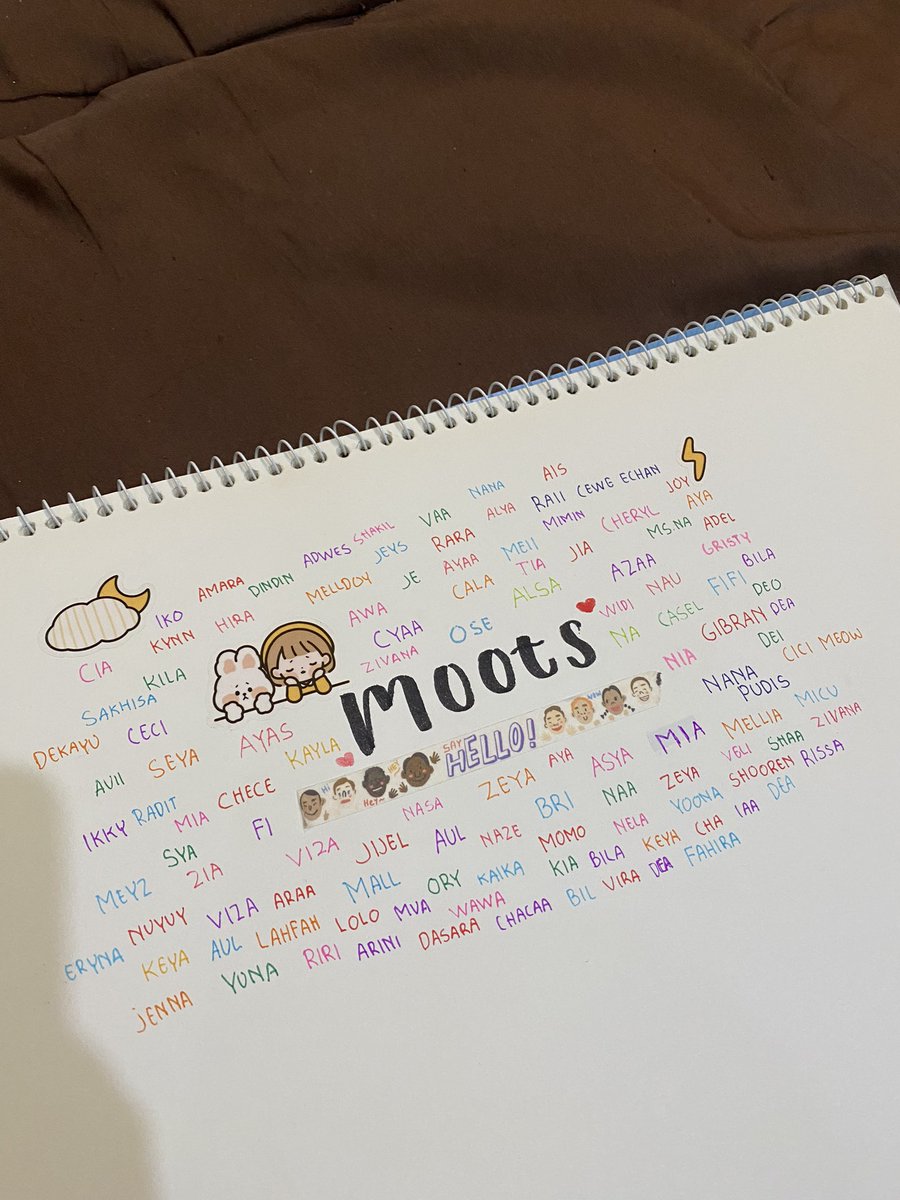 AIS
NANA
RAII CEWE ECHAN
JOY
VAA
ALYA
MIMIN
CHERYL
AYA
SHAKIL
ADWES
JEYS
RARA
MEII
JIA
MS.NA
ADEL
AMARA
DINDIN
MELLDOY
JE
AYAA
TIA
AZAA
GRISTY
IKO
HIRA
AWA
CALA
ALSA
NAU
FIFI
BILA
KYNN
CYAA
OSE
WIDI
CASEL
DEO
CIA
KILA
ZIVANA
NA
GIBRAN
DEA
SAKHISA
moots
NIA
DEI
CICI MEOW
DEKAYU
CECI
AYAS
KAYLA
NANA
PUDIS
AVII
SEYA
HI
HEY~
HEY
SAY
HELLO!
WOW
MIA
MELLIA
MICU
IKKY
RADIT
MIA
CHECE
NASA
ZEYA
AYA
ASYA
VELI
SHAA
ZIVANA
SYA
FI
VIZA
JIJEL
AUL
NAZE
BRI
NAA
ZEYA
YOONA
SHOOREN
RISSA
MEYZ
ZIA
MALL
ORY
KAIKA
MOMO
NELA
KEYA
CHA
IAA
DEA
NUYUY
VIZA
ARAA
LOLO
MUA
WAWA
KIA
BILA
VIRA
DEA
FAHIRA
ERYNA
KEYA
AUL
LAHFAH
ARINI
DASARA
CHACAA
BIL
JENNA
YUNA
RIRI